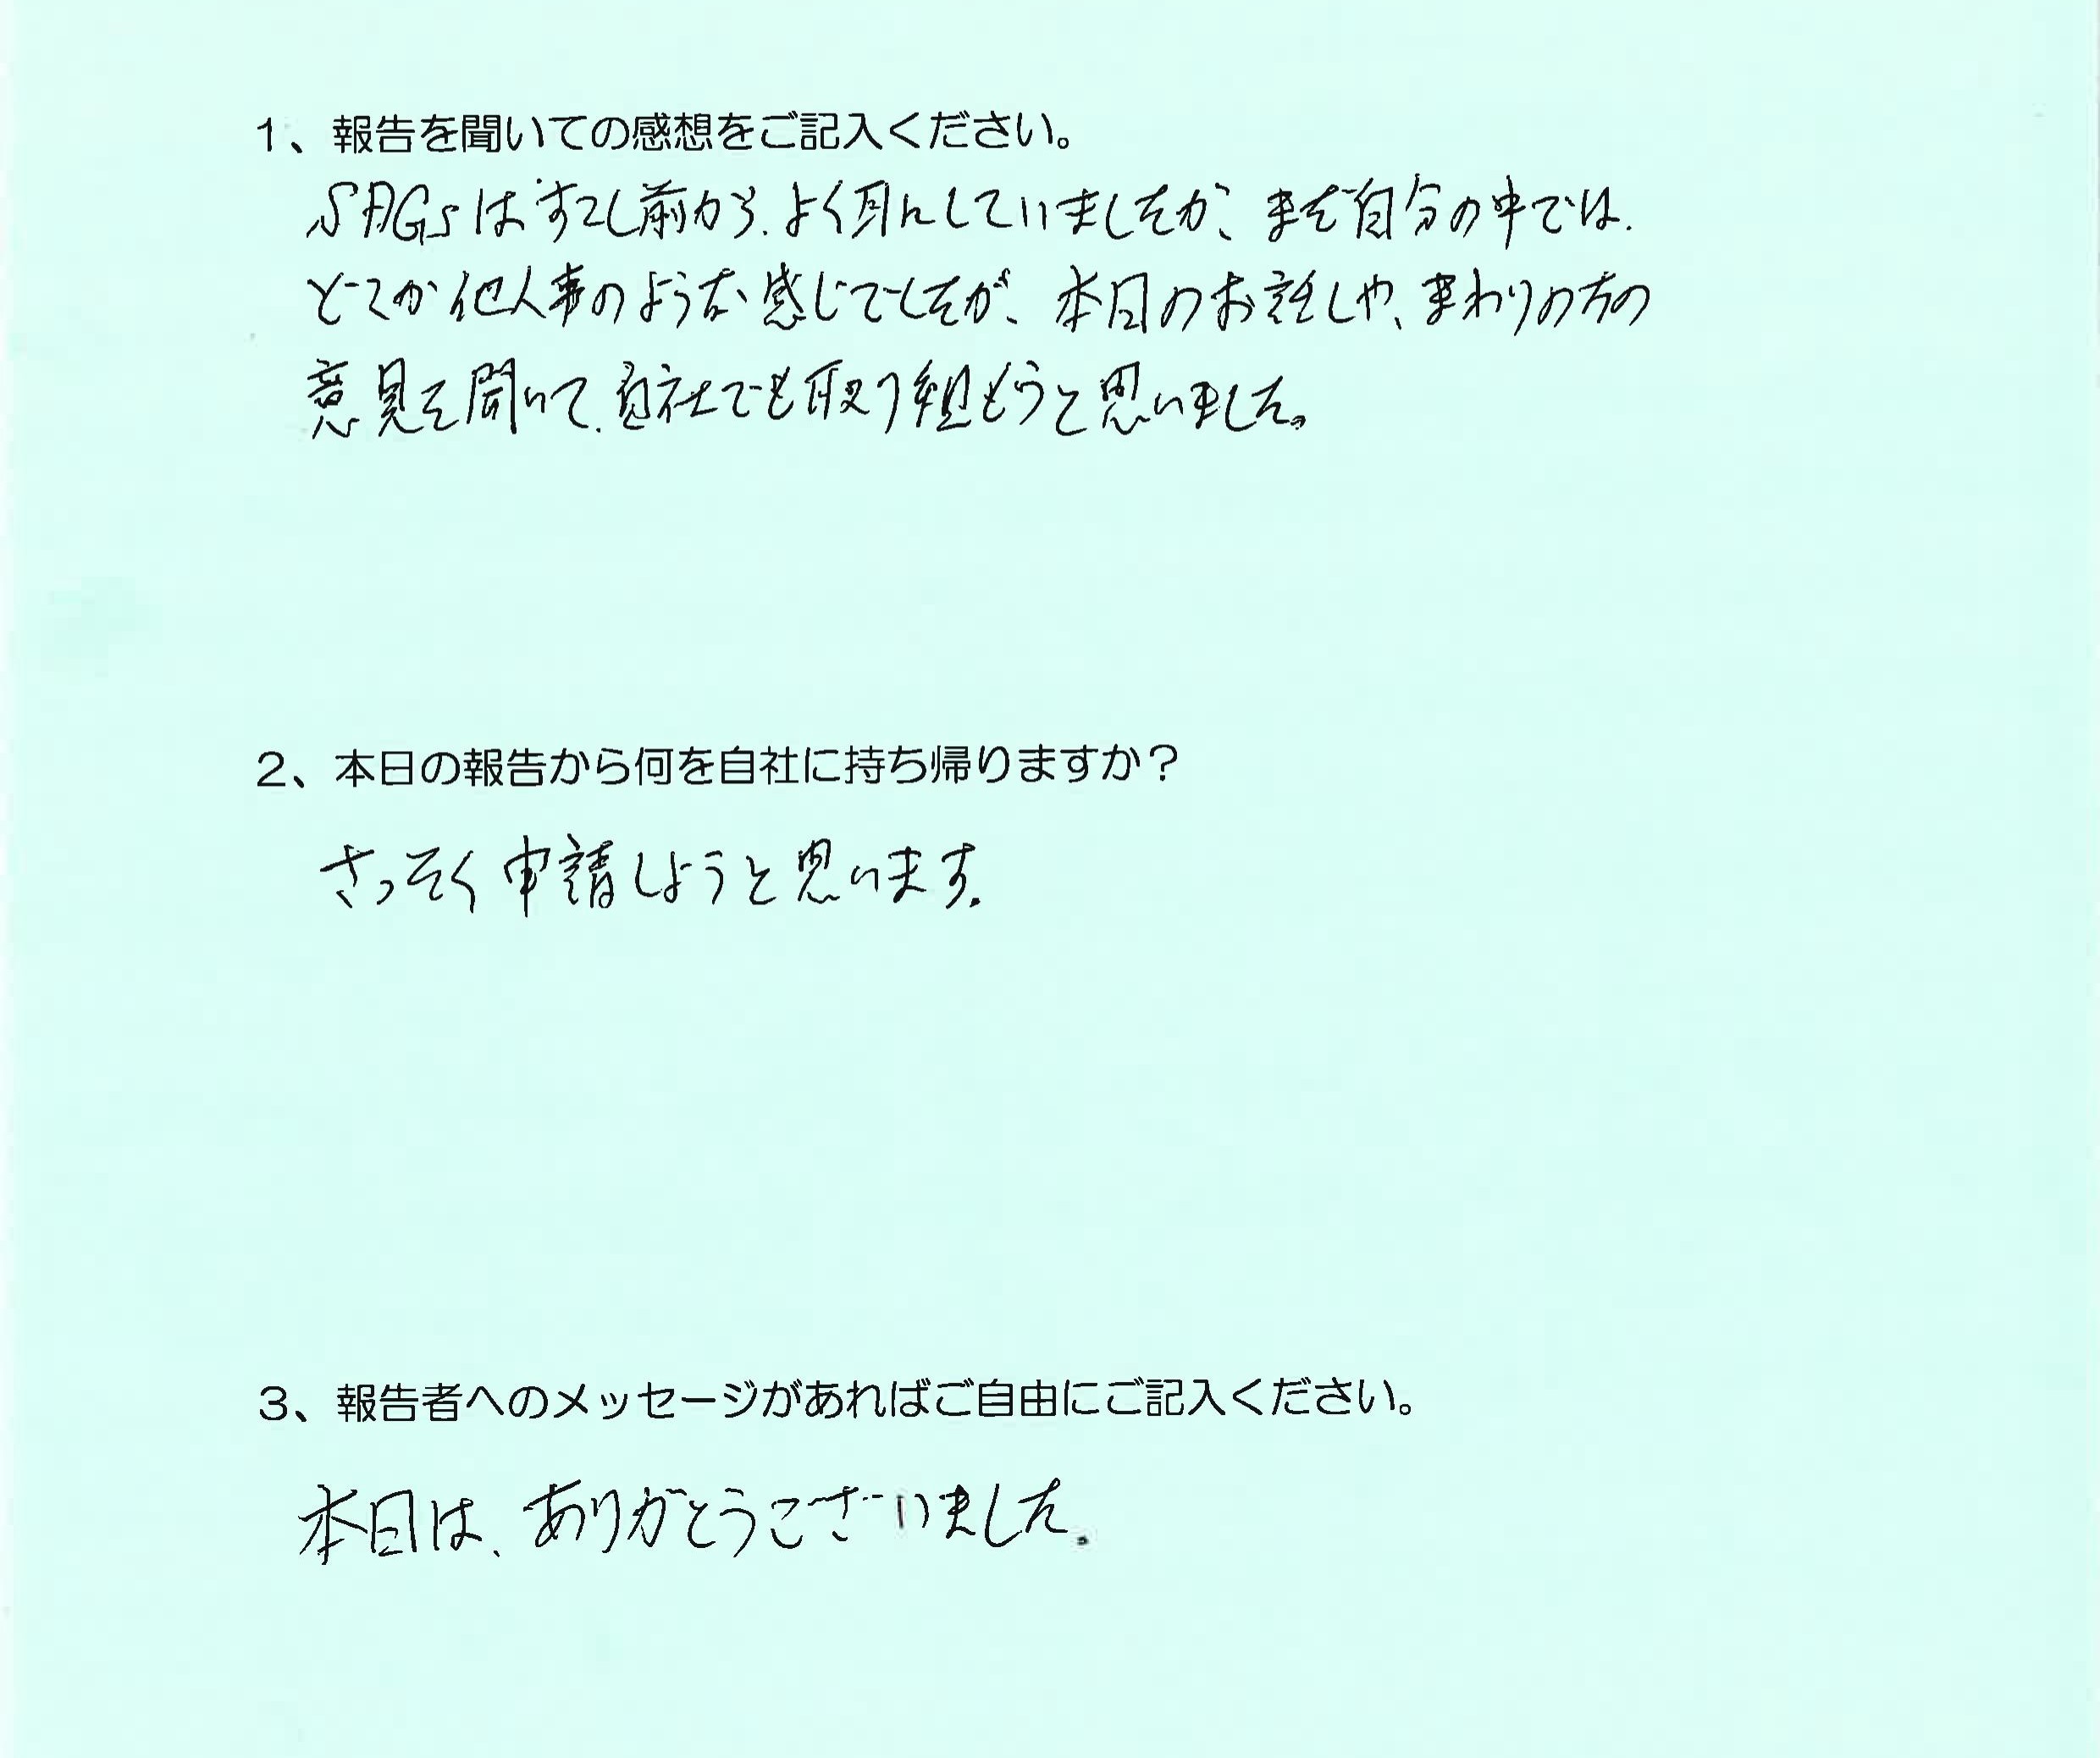 1、報告を聞いての感想をご記入ください。
SDGsはすこし前から、よく耳にしていましたが、まだ自分の中では、
どこか他人事のような感じでしたが、本日のお話しや、まわりの方の
意見を聞いて、自社でも取り組もうと思いました。
2、本日の報告から何を自社に持ち帰りますか？
さっそく申請しようと思います。
3、報告者へのメッセージがあればご自由にご記入ください。
本日は、ありがとうございました。